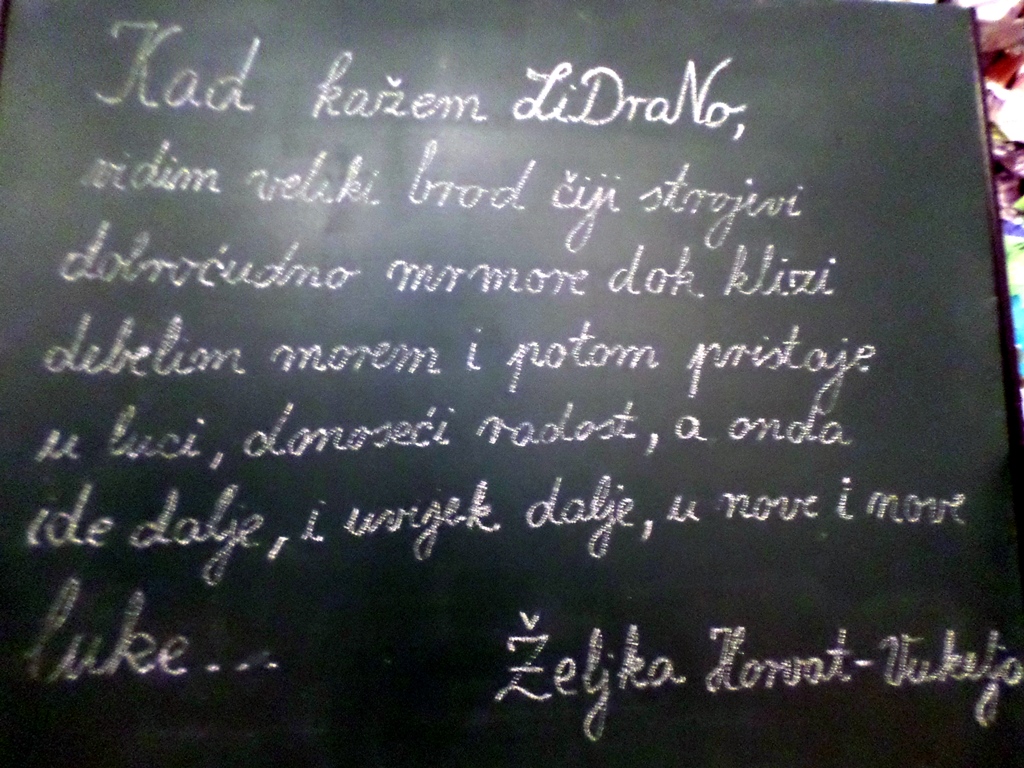 Kad kažem LiDraNo,
vidim veliki brod čiji strojevi
dobroćudno mrmore dok klizi
debelim morem i potom pristaje
u luci, donoseći radost, a onda
ide dalje, i uvijek dalje, u nove i nove
luke...
Željka Horvat-Vukelja